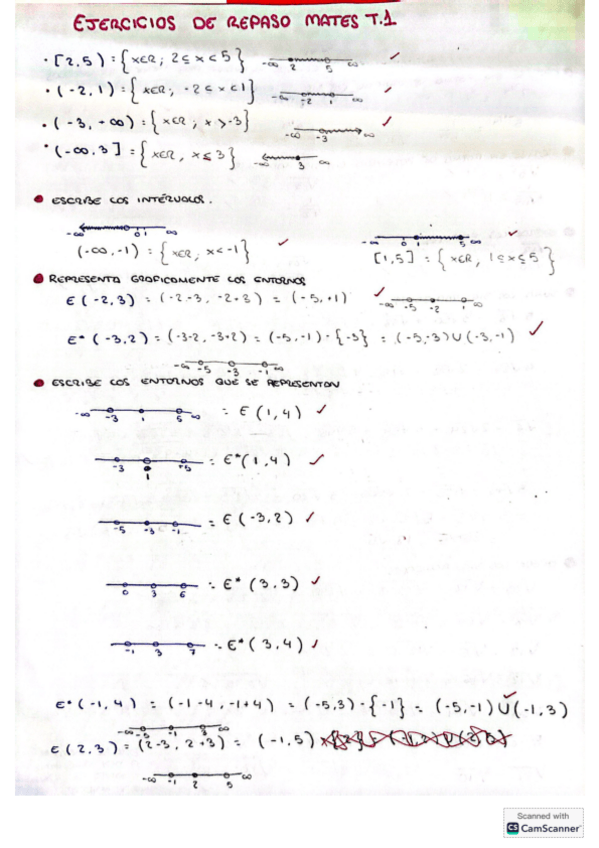 EJERCICIOS DE REPASO MATES T.1
· [2,5) = {x∈R; 2≤x<5} -∞ 2 5 ∞ ✓
· (-2,1) = {x∈R; -2≤x<1} -∞ -2 1 ∞ ✓
· (-3,+∞) = {x∈R, x>-3} -∞ -3 ∞ ✓
· (-∞,3] = {x∈R, x≤3} -∞ 3 ∞
● ESCRIBE LOS INTÉRVALOS.
-∞ 0 1 ∞ -∞ 0 1 5 ∞ ✓
(-∞,-1) = {x∈R, x<-1} ✓ [1,5] = {x∈R, 1≤x≤5}
● REPRESENTA GRAFICAMENTE LOS ENTORNOS
E(-2,3) = (-2-3, -2+3) = (-5,+1) ✓ -∞ -5 -2 1 ∞
E*(-3,2) = (-3-2, -3+2) = (-5,-1) - {-3} = (-5,-3)∪(-3,-1) ✓
-∞ -5 -3 -1 ∞
● ESCRIBE LOS ENTORNOS QUE SE REPRESENTAN
-∞ -3 1 5 ∞ = E(1,4) ✓
-3 1 +5 = E*(1,4) ✓
-5 -3 -1 = E(-3,2) ✓
0 3 6 = E*(3,3) ✓
-1 3 7 = E*(3,4) ✓
E*(-1,4) = (-1-4, -1+4) = (-5,3) - {-1} = (-5,-1)∪(-1,3) ✓
-∞ -5 -1 3 ∞
E(2,3) = (2-3, 2+3) = (-1,5)
-∞ -1 2 5 ∞
Scanned with
CS CamScanner